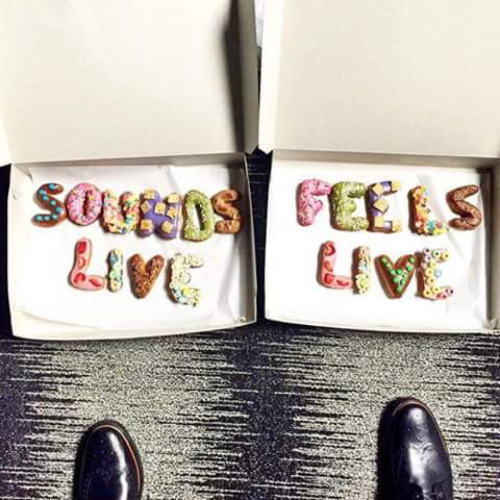 SOUNDS
LIVE
FEELS
LIVE